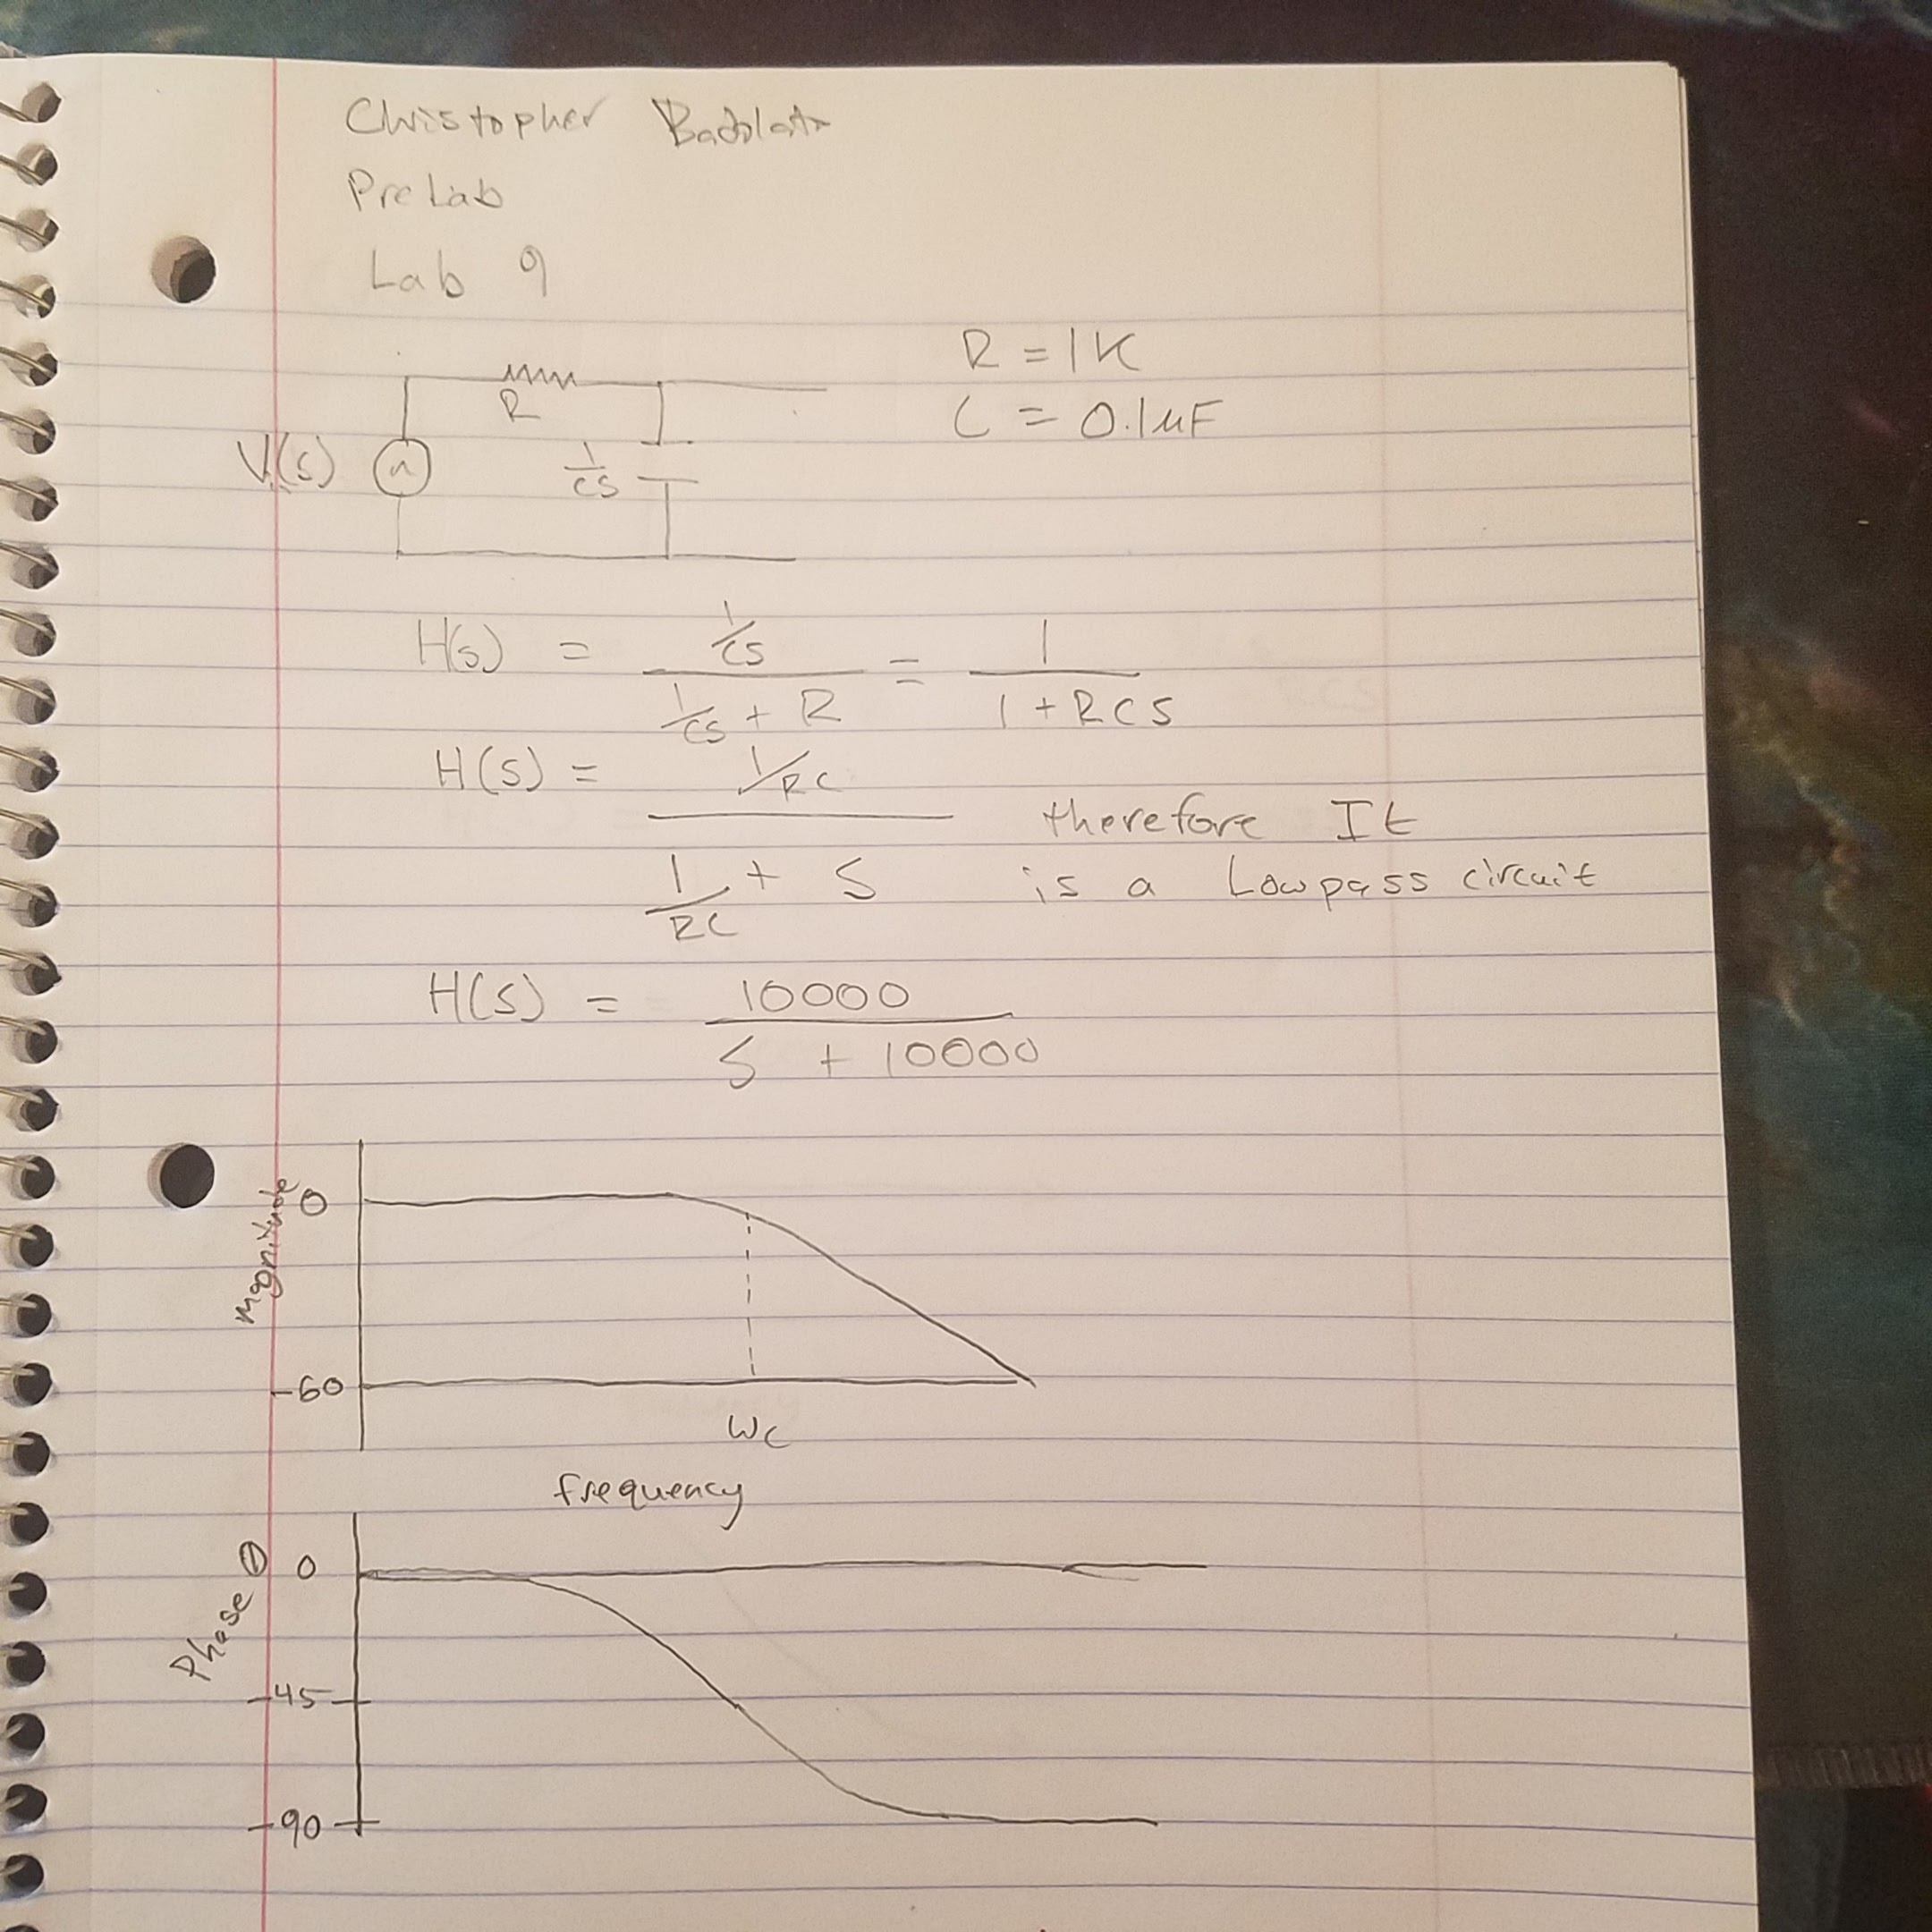 Christopher
PreLab
Lab 9
R = 1K
R
C = 0.1μF
V(s)
1/CS
H(s) = (1/CS) / (1/CS + R) = 1 / (1 + RCS)
H(S) = (1/RC) / (1/RC + S)
therefore It
is a Lowpass circuit
H(S) = 10000 / (S + 10000)
Magnitude
0
-60
Wc
frequency
Phase Θ
0
-45
-90